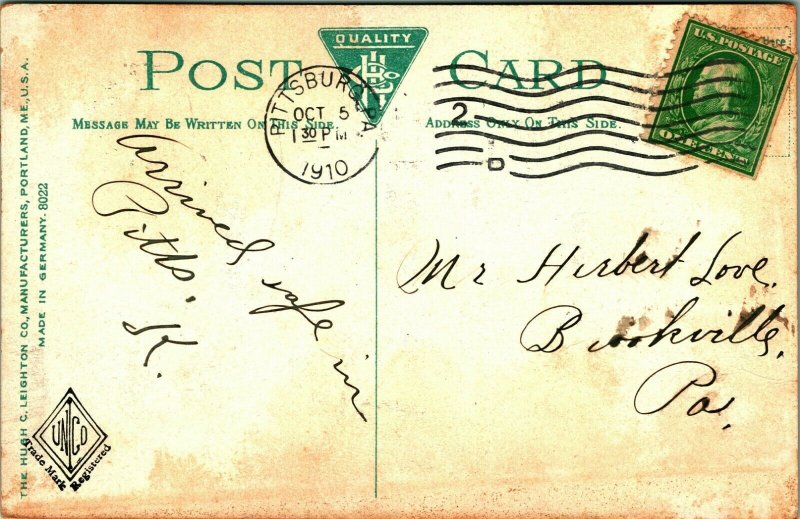 QUALITY
POST CARD
MESSAGE MAY BE WRITTEN ON THIS SIDE.
ADDRESS ONLY ON THIS SIDE.
PITTSBURG, PA
OCT 5
1 30 PM
1910
2
D
U.S. POSTAGE
ONE CENT
Arrived safe in
Pitts.
K.
Mr Herbert Love.
Brookville,
Pa.
THE HUGH C. LEIGHTON CO., MANUFACTURERS, PORTLAND, ME., U.S.A.
MADE IN GERMANY. 8022
UNCO
Trade Mark Registered